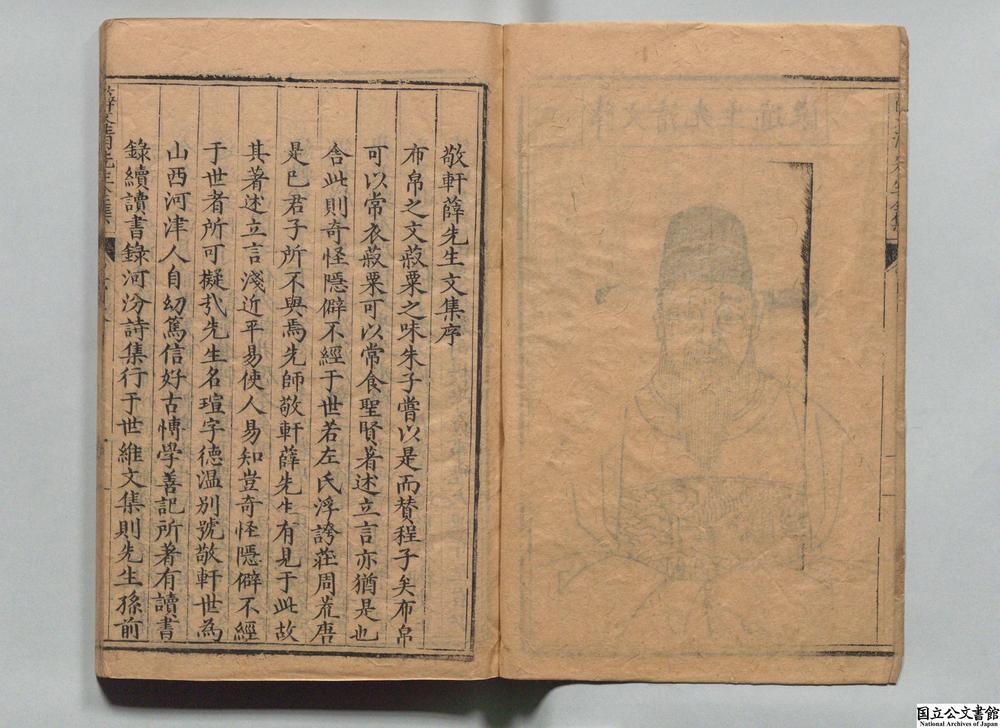 敬軒薛先生文集序
布帛之文菽粟之味朱子嘗以是而賛程子矣布帛
可以常衣菽粟可以常食聖賢著述立言亦猶是也
舍此則奇怪隱僻不經于世若左氏浮誇莊周荒唐
是已君子所不與焉先師敬軒薛先生有見于此故
其著述立言淺近平易使人易知豈奇怪隱僻不經
于世者所可擬㢤先生名瑄字德温別號敬軒世為
山西河津人自幼篤信好古博學善記所著有讀書
錄續讀書錄河汾詩集行于世維文集則先生孫前
国立公文書館
National Archives of Japan